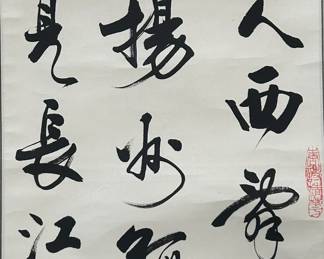 人西辭
揚州孤
見長江